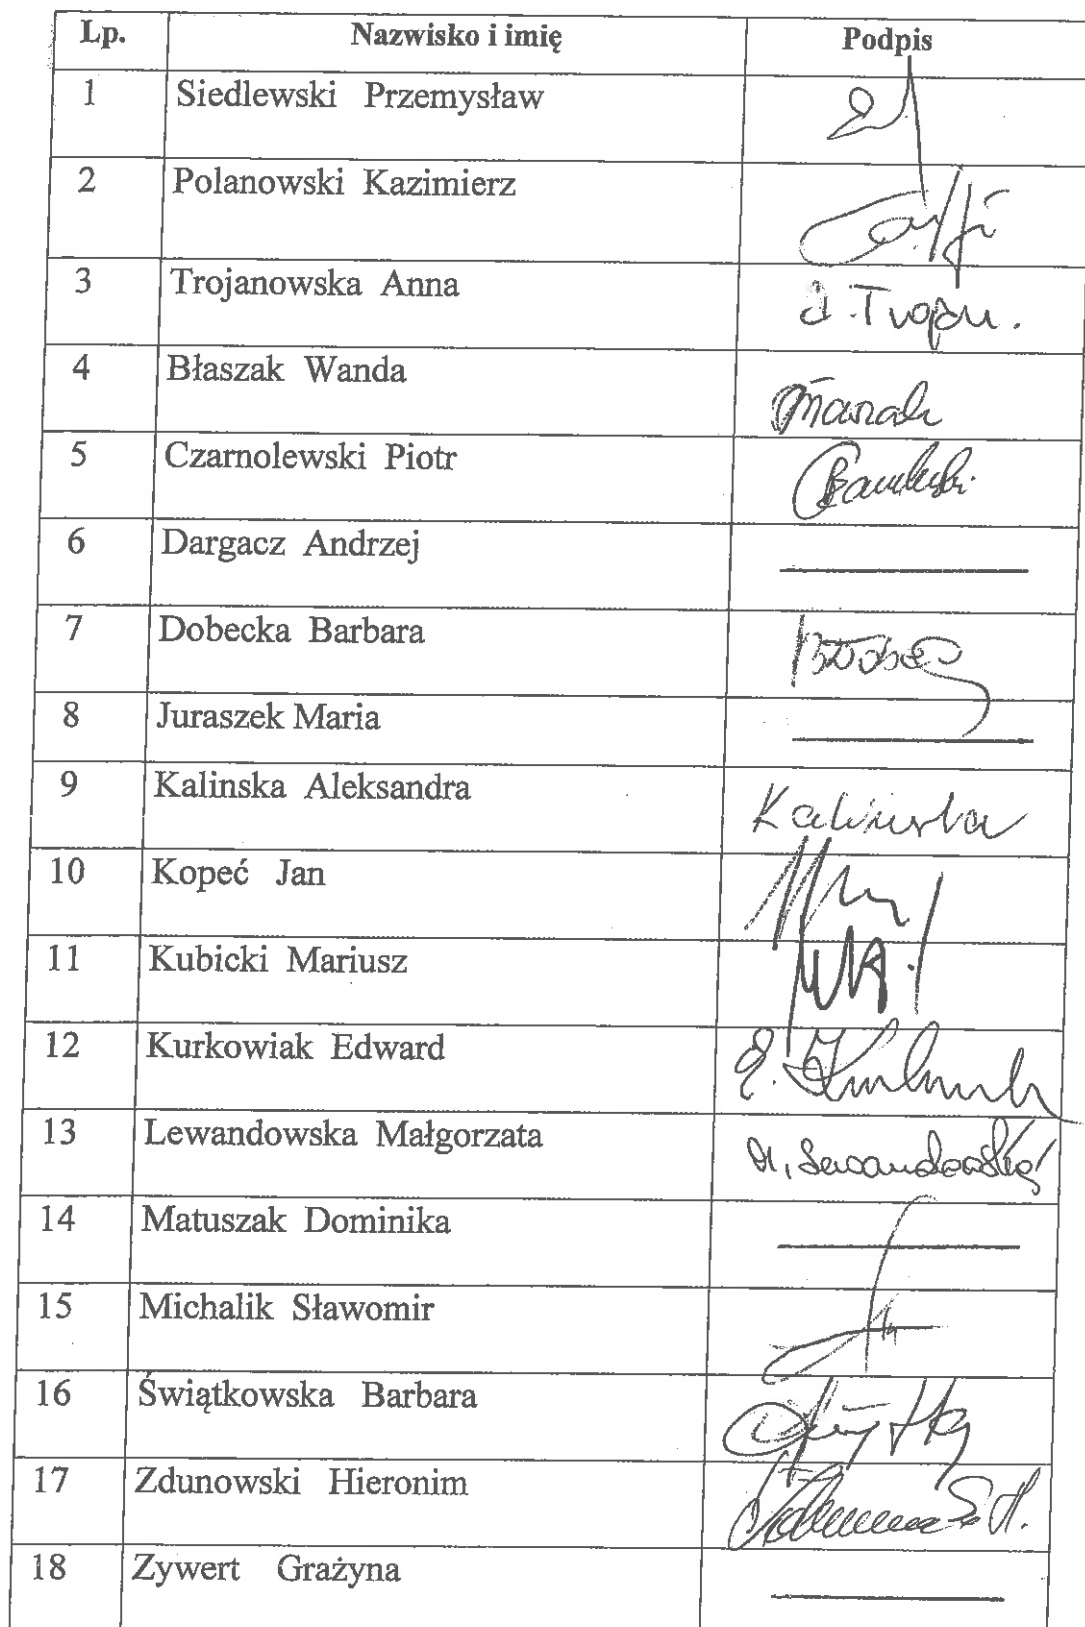 Lp. Nazwisko i imię Podpis
1 Siedlewski Przemysław
2 Polanowski Kazimierz
3 Trojanowska Anna
4 Błaszak Wanda
5 Czarnolewski Piotr
6 Dargacz Andrzej
7 Dobecka Barbara
8 Juraszek Maria
9 Kalinska Aleksandra Kalinska
10 Kopeć Jan
11 Kubicki Mariusz
12 Kurkowiak Edward
13 Lewandowska Małgorzata M. Lewandowska
14 Matuszak Dominika
15 Michalik Sławomir
16 Świątkowska Barbara
17 Zdunowski Hieronim
18 Zywert Grażyna